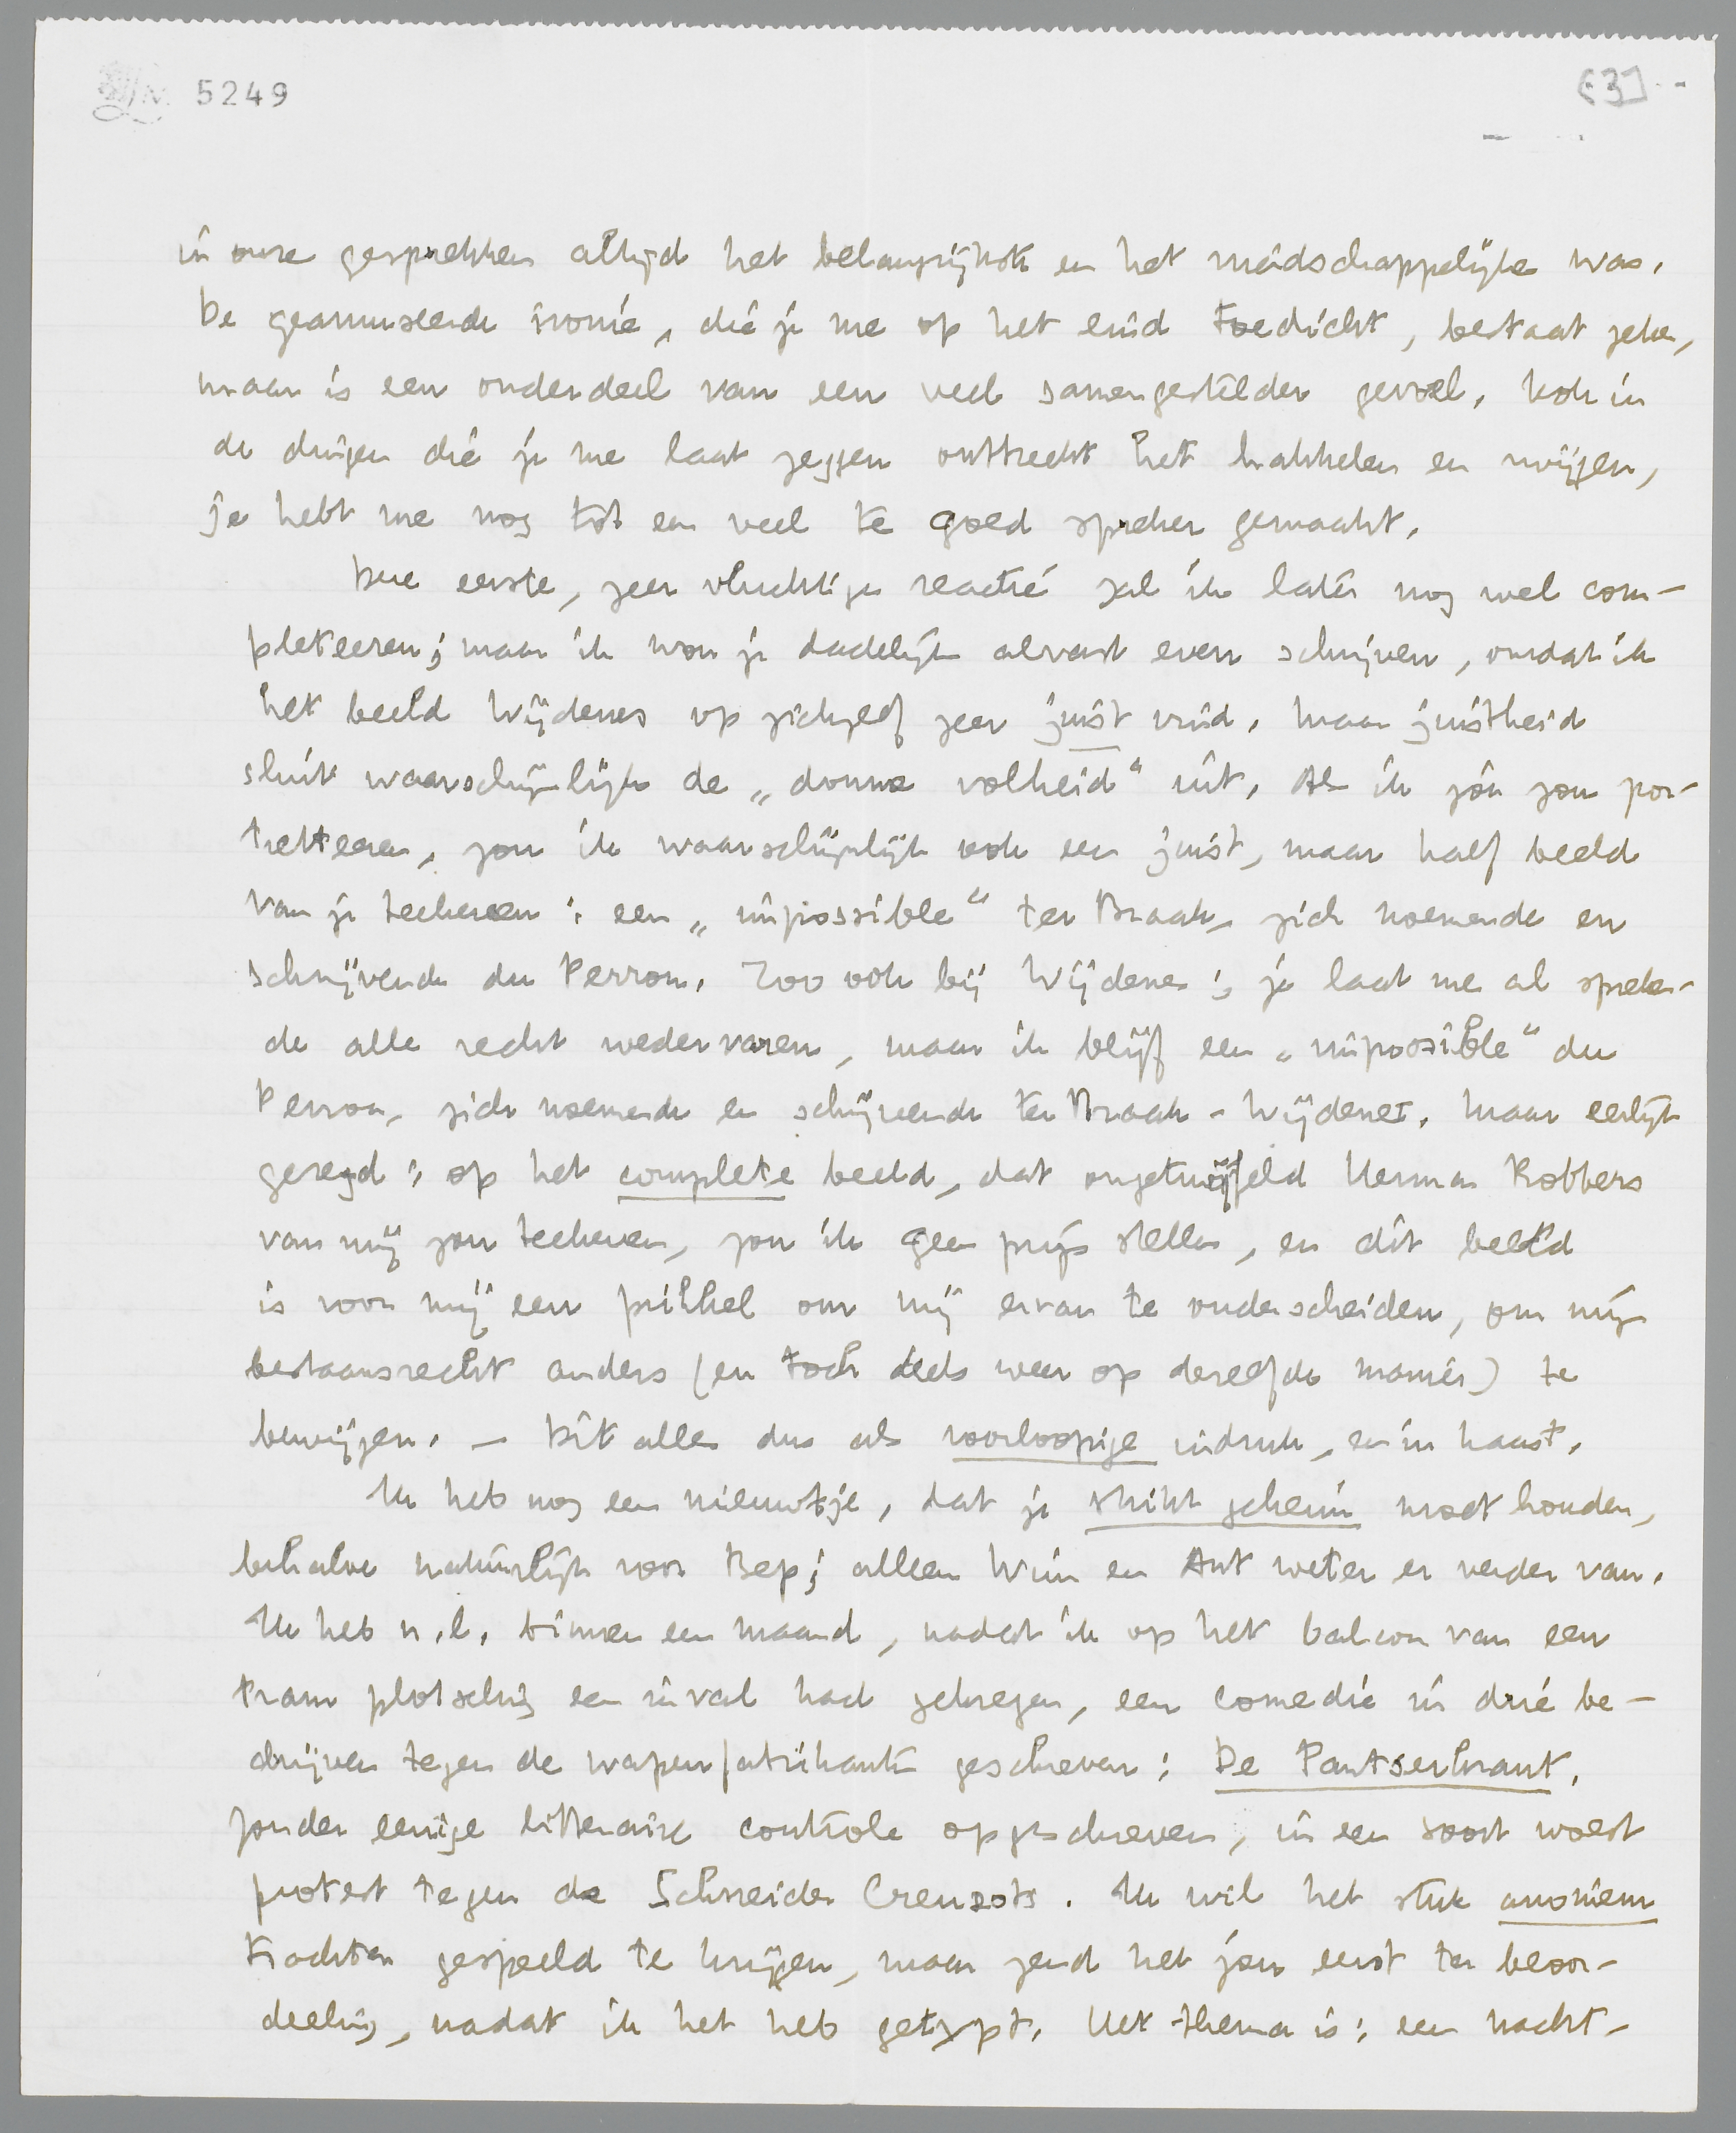 5249
[3]
in onze gesprekken altijd het belangrijkste en het vriendschappelijke was.
De geamuseerde ironie, die je me op het eind toedicht, bestaat zeker,
maar is een onderdeel van een veel samengestelder gevoel. Ook in
de dingen die je me laat zeggen ontbreekt het hakkelen en
je hebt me nog tot een veel te goed spreker gemaakt.
Deze eerste, zeer vluchtige reactie zal ik later nog wel com-
pleteeren; maar ik wou je dadelijk alvast even schrijven, omdat ik
het beeld Wijdenes op zichzelf zeer juist vind. Maar juistheid
sluit waarschijnlijk de „domme volheid" uit. Als ik jou zou por-
tretteeren, zou ik waarschijnlijk ook een juist, maar half beeld
van je teekenen: een „impossible" ter Braak, zich noemende en
schrijvende du Perron. Zoo ook bij Wijdenes; je laat me al spreken-
de alle recht wedervaren, maar ik blijf een „impossible" du
Perron, zich noemende en schrijvende ter Braak-Wijdenes. Maar eerlijk
gezegd: op het complete beeld, dat ongetwijfeld Herman Robbers
van mij zou teekenen, zou ik geen prijs stellen, en dit beeld
is voor mij een prikkel om mij ervan te onderscheiden, om mijn
bestaansrecht anders (en toch deels weer op dezelfde manier) te
bewijzen. — Dit alles dus als voorloopige indruk, en in haast.
Ik heb nog een nieuwtje, dat je strikt geheim moet houden,
behalve natuurlijk voor Bep; alleen Wim en Ant weten er verder van.
Ik heb n.l. binnen een maand, nadat ik op het balcon van een
tram plotseling een inval had gekregen, een comedie in drie be-
drijven tegen de wapenfabrikanten geschreven: De Pantserkrant.
Zonder eenige litteraire controle opgeschreven, in een soort woest
protest tegen de Schneider Creuzots. Ik wil het stuk anoniem
trachten gespeeld te krijgen, maar zend het jou eerst ter beoor-
deeling, nadat ik het heb getypt. Het thema is: een nacht-